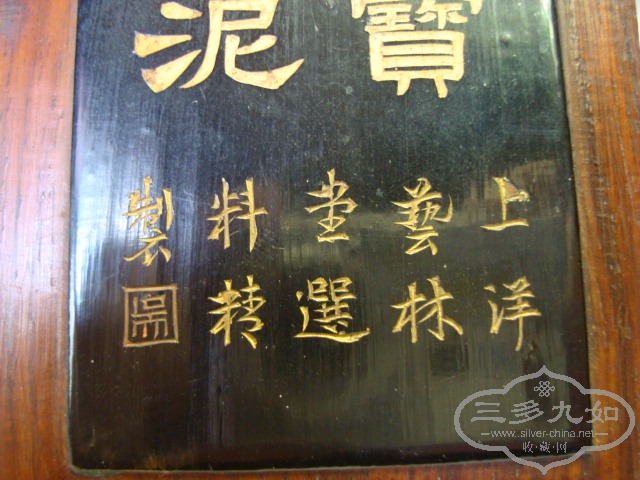 寶泥
上洋
藝林
堂選
料精
製
吳
三多九如
www.silver-china.net
收·藏·网